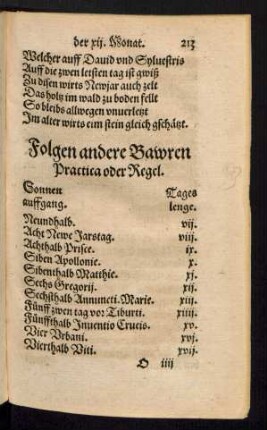 der xij. Monat. 213
Welcher auff Dauid vnd Syluestris
Auff die zwen letsten tag ist gwiß
Zu disen wirts Newjar auch zelt
Das holtz im wald zu boden fellt
So bleibs allwegen vnuerletzt
Im alter wirts eim stein gleich gschätzt.
Folgen andere Bawren
Practica oder Regel.
Sonnen Tages
auffgang. lenge.
Neundhalb. vij.
Acht Newe Jarstag. viij.
Achthalb Prisce. ix.
Siben Apollonie. x.
Sibenthalb Matthie. xj.
Sechs Gregorij. xij.
Sechsthalb Annuncti. Marie. xiij.
Fünff zwen tag vor Tiburti. xiiij.
Fünffthalb Inuentio Crucis. xv.
Vier Vrbani. xvj.
Vierthalb Viti. xvij.
O iiij